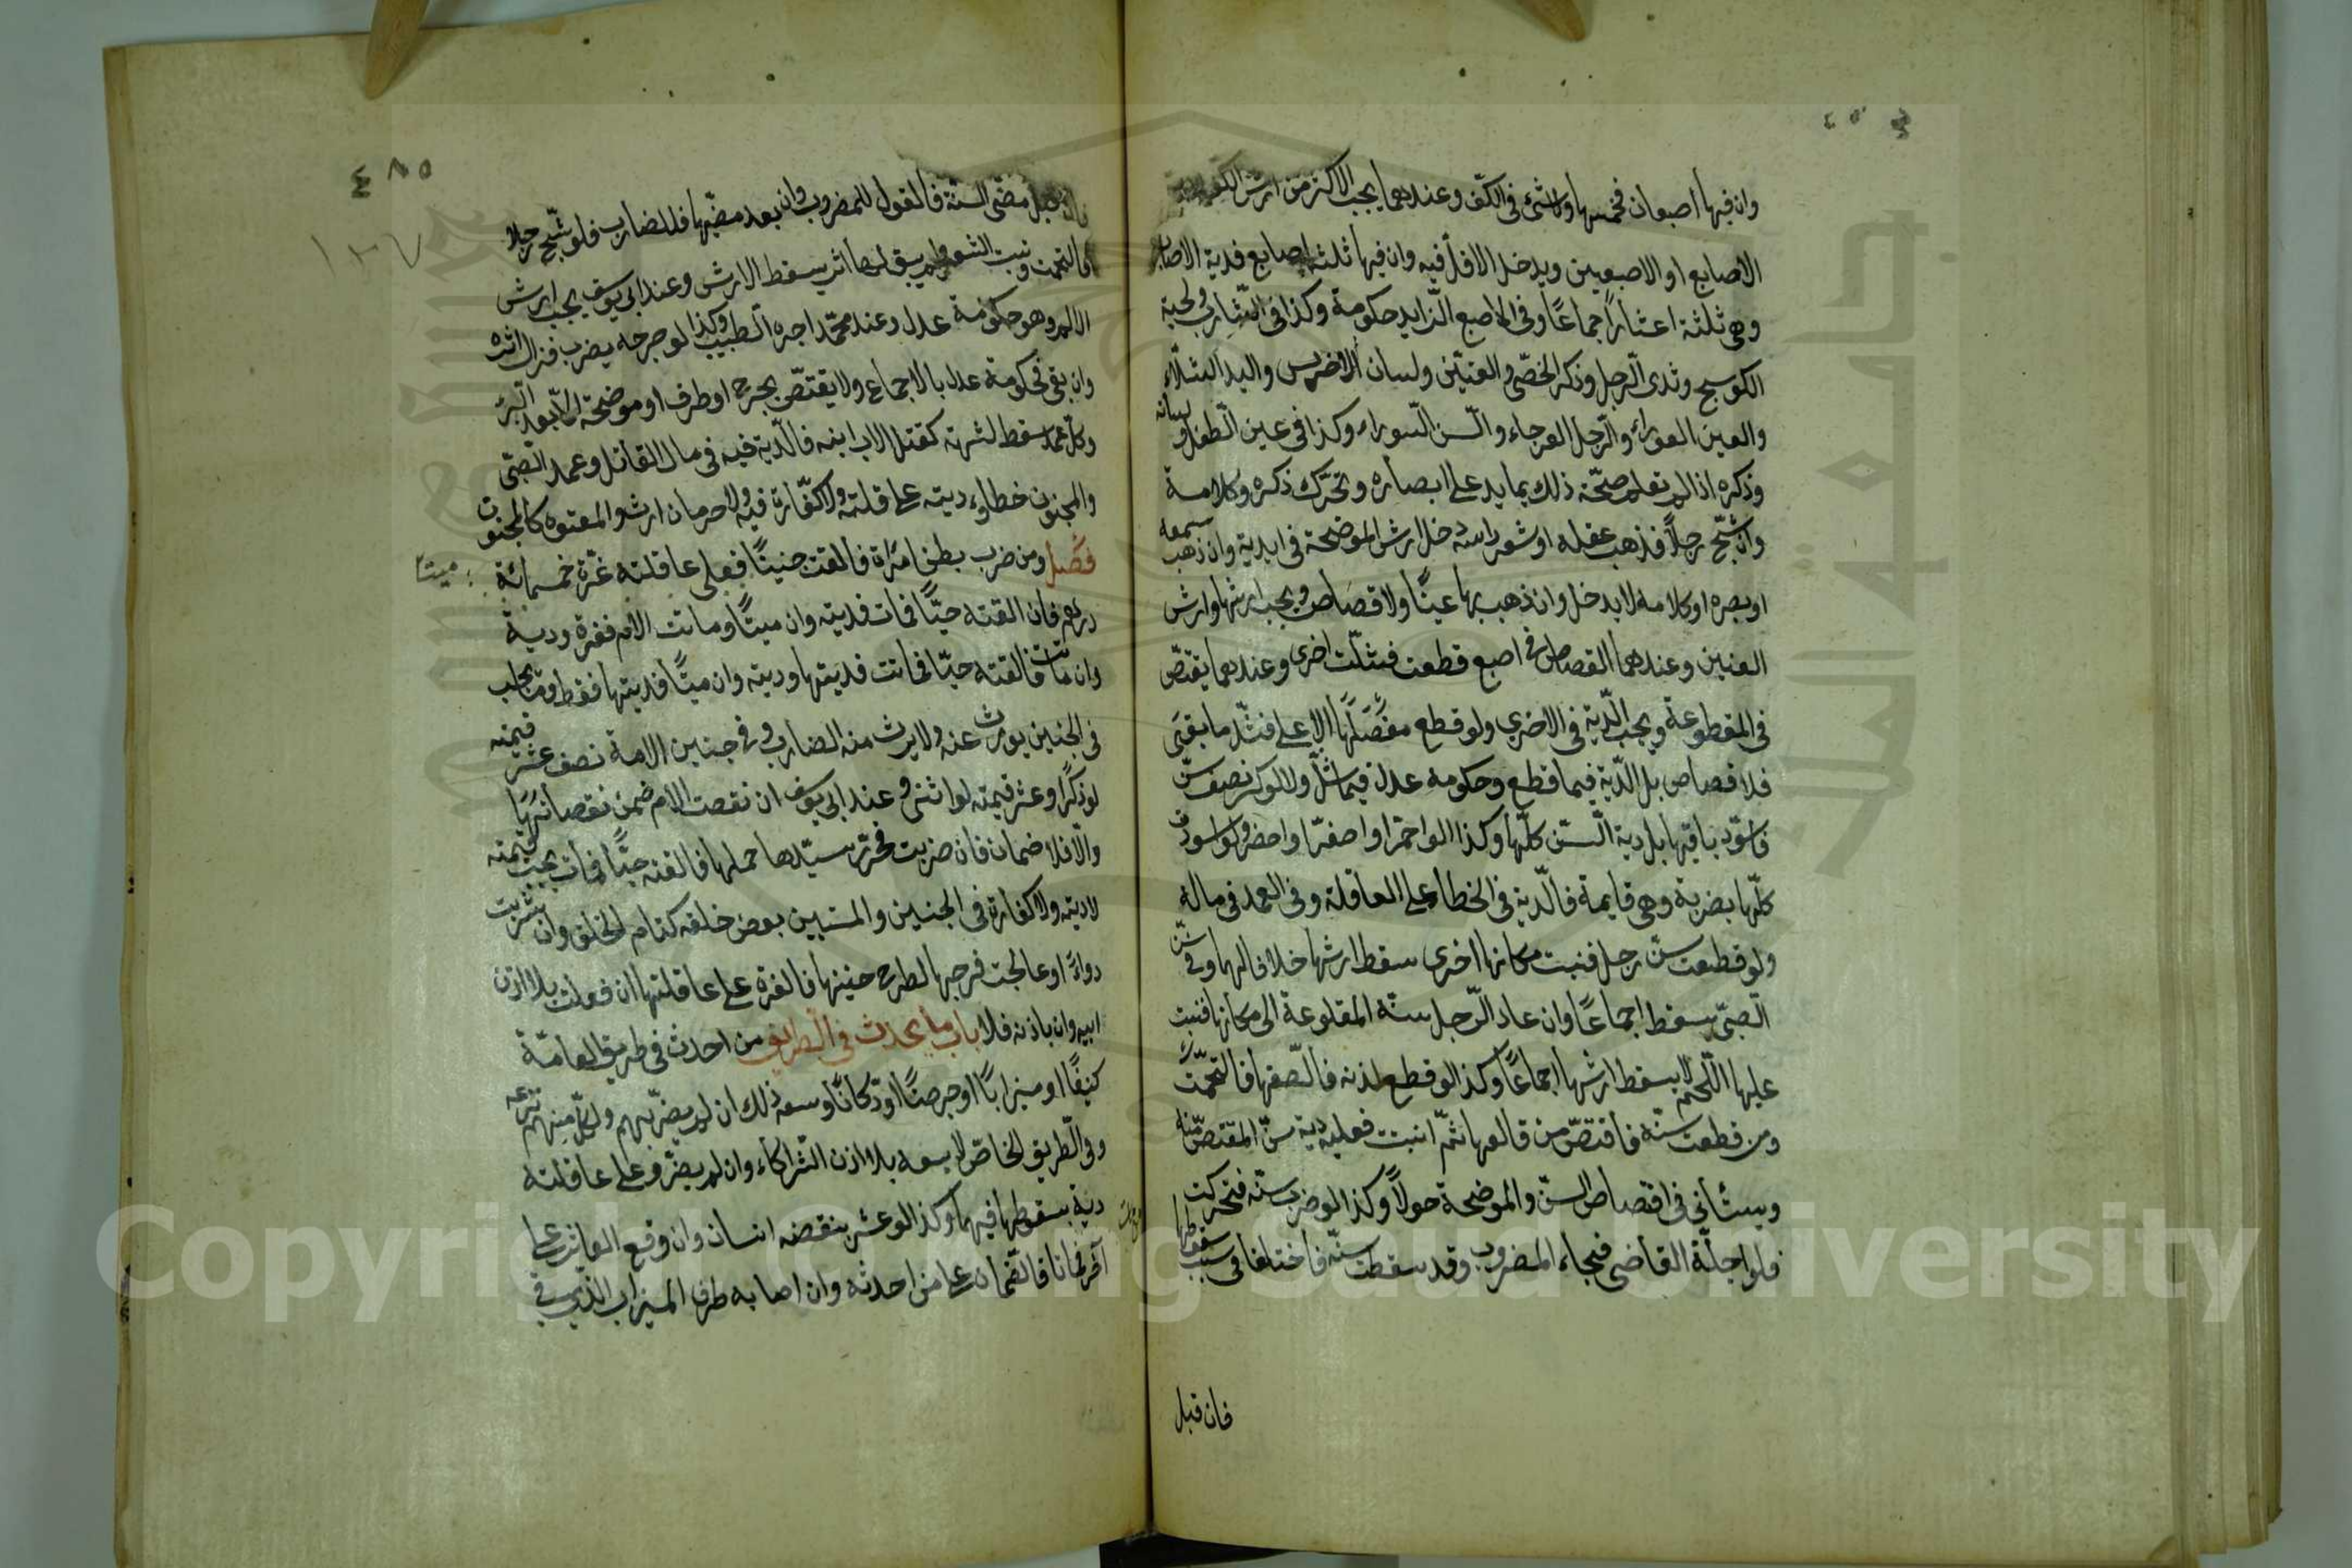 وان فيها اصبعان فخمسها ولا شئ في الكف وعندهما يجب الاكثر من ارش الكف ودية
الاصابع او الاصبعين ويدخل الاقل فيه وان فيها ثلثة اصابع فدية الاصابع
وهي ثلثة اعشار اجماعًا وفي الاصبع الزايد حكومة وكذا في الشارب ولحية
الكوسج وثدى الرجل وذكر الخصّى والعنّين ولسان الاخرس واليد الشلّاء
والعين العوراء والرّجل العرجاء والسّن السّوراء وكذا في عين الطّفل ولسانه
وذكره اذا لم تعلم صحّة ذلك بما يدل على ابصاره وتحرّك ذكره وكلامه
وان شجّ رجلاً فذهب عقله او شعر راسه دخل ارش الموضحة في الدية وان ذهب سمعه
او بصره او كلامه لا يدخل وان ذهب بها عيناه لا قصاص ويجب ارشها وارش
العينين وعندهما القصاص في اصبع قطعت فشلّت اخرى وعندهما يقتصّ
في المقطوعة ويجب الدّية في الاخرى ولو قطع مفصلها الاعلى فشلّ ما بقى
فلا قصاص بل الدّية فيما قطع وحكومة عدل فيما شلّ ولو كسر نصف سنّ
فاسودّ باقيها بل دية السّن كلّها وكذا لو احمرّ او اصفرّ او اخضر ولو اسودت
كلّها بضربة وهي قايمة فالدّية في الخطاء على العاقلة وفي العمد في ماله
ولو قطعت سنّ رجل فنبت مكانها اخرى سقط ارشها خلافا لهما وفي سنّ
الصّبىّ يسقط اجماعًا وان عاد الرّجل سنّه المقلوعة الى مكانها فنبت
عليها اللّحم لا يسقط ارشها اجماعًا وكذا لو قطع اذنه فالصقها فالتحمت
ومن قطعت سنّه فاقتصّ من قالعها ثمّ انبت فعليه دية سنّ المقتصّ منه
ويستأنى في اقتصاص السنّ والموضحة حولاً وكذا لو ضرب سنّه فتحركت
فلو اجلّه القاضى فجاء المضروب وقد سقطت سنّه فاختلفا في سبب سقوطها
فان قبل
٤٨٥
١٣٧
فان قبل مضّى السنة فالقول للمضروب وان بعد مضيّها فللضارب فلو شجّ رجلا
فالتحمت ونبت الشعر ولم يبق لها اثر يسقط الارش وعند ابي يوسف يجب ارش
الالم وهو حكومة عدل وعند محمّد اجرة الطبيب وكذا لو جرحه بضرب فزال اثره
وان بقى فحكومة عدل بالاجماع ولا يقتصّ بجرح او طرف او موضحة الّا بعد البرء
وكلّ عمد سقط لشبهة كقتل الاب ابنه فالدّية فيه في مال القاتل وعمد الصّبىّ
والمجنون خطاء ديته على عاقلته ولا كفّارة فيه ولا حرمان ارث والمعتوه كالمجنون
فصل ومن ضرب بطن امراة فالقت جنينًا فعلى عاقلته غرّة خمسمائة
ميتًا
درهم فان القته حيًّا فمات فديته وان ميتًا وماتت الام فغرة ودية
وان ماتت فالقته حيّا فماتت فديتها وديته وان ميتًا فديتها فقط وما يجب
في الجنين يورث عنه ولا يرث منه الضارب وفي جنين الامة نصف عشر قيمته
لو ذكرًا وعشر قيمته لو انثى وعند ابي يوسف ان نقصت الام ضمن نقصانها
والّا فلا ضمان فان ضربت فحرّر سيّدها حملها فالقته حيًّا فمات يجب قيمته
لا ديته ولا كفارة في الجنين والمستبين بعض خلقه كتام الخلق وان شربت
دواءً او عالجت فرجها لطرح جنينها فالغرة على عاقلتها ان فعلت بلا اذن
ابيه وان باذنه فلا باب ما يحدث في الطريق من احدث في طريق العامّة
كنيفًا او ميزابًا او جرصنًا او دّكانًا وسعه ذلك ان لم يضرّ بهم ولكلّ منهم نزعه
وفي الطّريق الخاصّ لا يسعه بلا اذن الشركاء وان لم يضرّ وعلى عاقلته
دية بسقوطها فيهما وكذا لو عثر بنقضه انسان وان وقع العاثر على
آخر فماتا فالضمان على من احدثه وان اصابه طرف الميزاب الذي في
Copyright © King Saud University